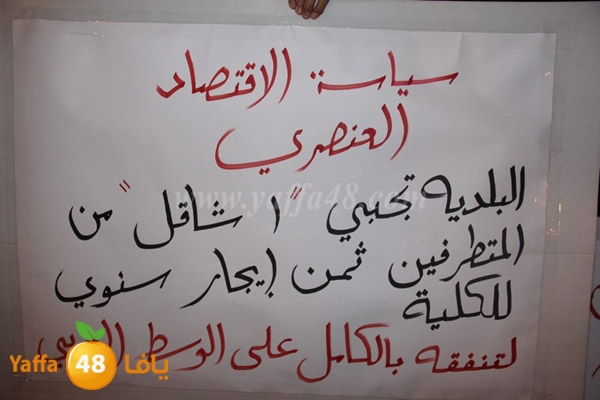 سياسة الاقتصاد
العنصري
البلدية تجبي "١ شاقل" من
المتطرفين ثمن إيجار سنوي
للكلية
لتنفقه بالكامل على الوسط العربي
www.yaffa48.com
Yaffa 48 يافا